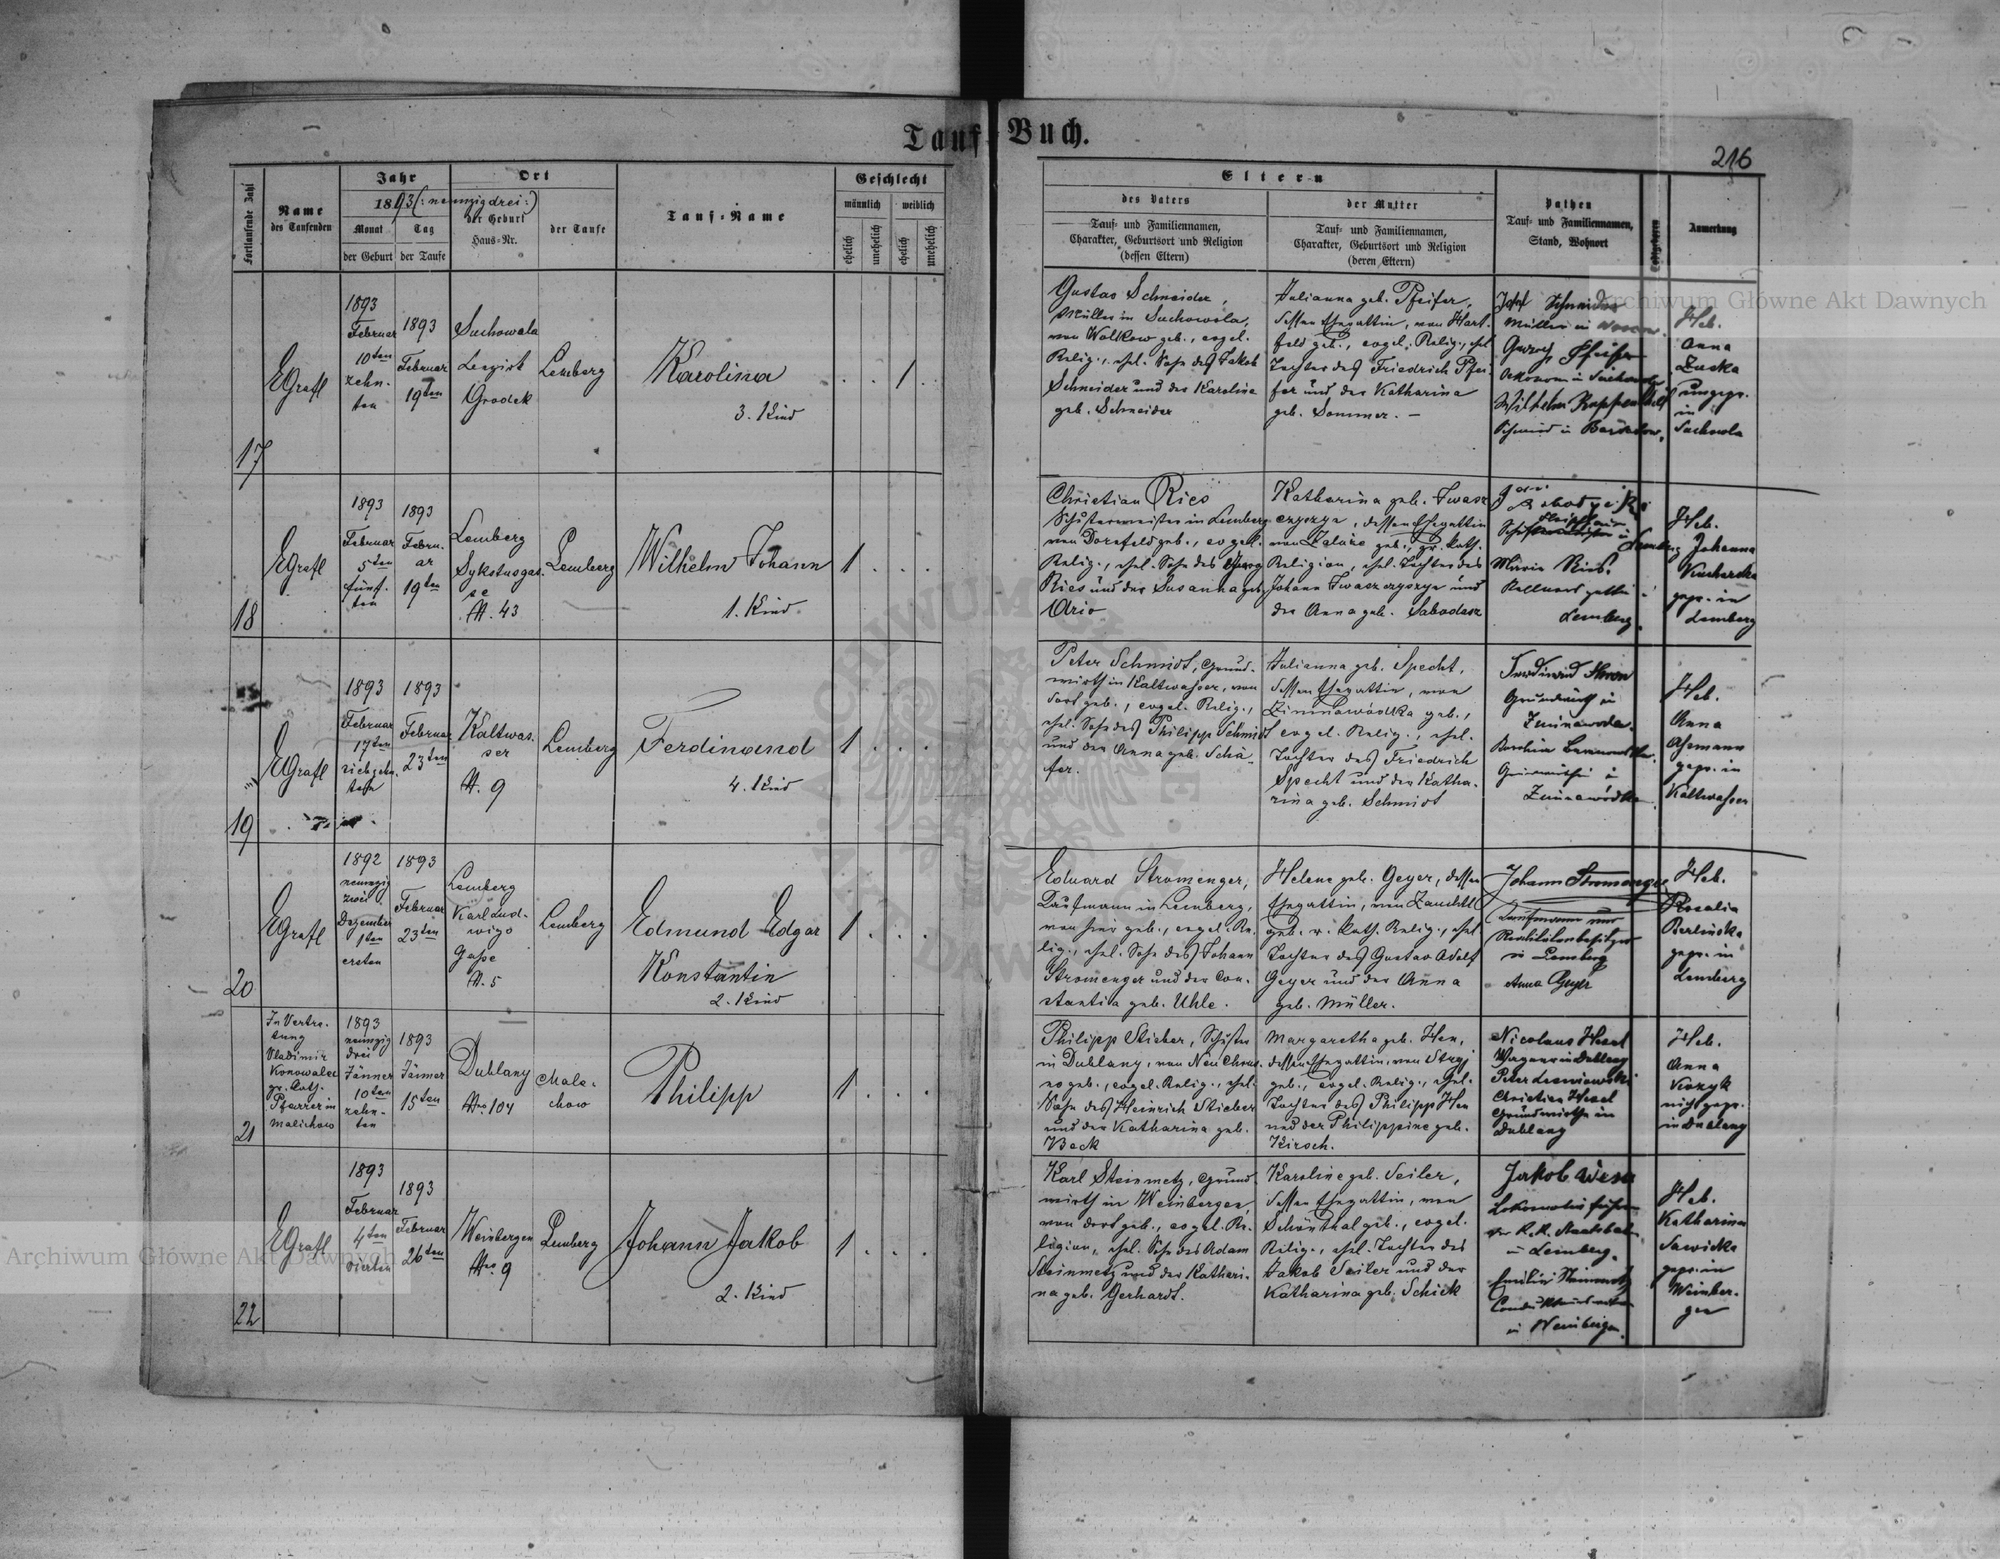 Tauf-Buch.
216
Fortlaufende Zahl
Name
des Taufenden
Jahr
1893 (: neunzigdrei :)
Monat
Tag
der Geburt
der Taufe
Ort
der Geburt
Haus-Nr.
der Taufe
Tauf-Name
Geschlecht
männlich
weiblich
ehelich
unehelich
ehelich
unehelich
Eltern
des Vaters
Tauf- und Familiennamen,
Charakter, Geburtsort und Religion
(dessen Eltern)
der Mutter
Tauf- und Familiennamen,
Charakter, Geburtsort und Religion
(deren Eltern)
Pathen
Tauf- und Familiennamen,
Stand, Wohnort
Anmerkung
17
EGrafl
1893
Februar
10ten
zehn-
ten
1893
Februar
19ten
Suchowola
Bezirk
Grodek
Lemberg
Karolina
3. Kind
1
Gustav Schneider,
Müller in Suchowola,
von Wolkow geb., evgel.
Relig., ehel. Sohn des Jakob
Schneider und der Karolina
geb. Schneider
Julianna geb. Pfeifer,
dessen Ehegattin, von Hart-
feld geb., evgel. Relig., ehel
Tochter des Friedrich Pfei-
fer und der Katharina
geb. Sommer. —
Schneider
Müller in
Pfeifer
Oekonom in
Wilhelm
Schmied in
Heb.
Anna
Zucka
ungepr.
in
Suchwola
18
EGrafl
1893
Februar
5ten
fünf-
ten
1893
Febru-
ar
19ten
Lemberg
Sykstusgas-
se
N. 43
Lemberg
Wilhelm Johann
1. Kind
1
Christian Ries
Schustermeister in Lemberg
von Dornfeld geb., evgel.
Relig., ehel. Sohn des Georg
Ries und der Susanna geb.
Ario
Katharina geb. Iwasz
czyszyn, dessen Ehegattin
von Zalaże geb., gr. kath.
Religion, ehel. Tochter des
Johann Iwaszczyszyn und
der Anna geb. Sabadasz
Lemberg
Maria Ries
Lemberg.
Heb.
Johanna
Kucharska
gepr. in
Lemberg
19
EGrafl
1893
Februar
17ten
siebzehn-
ten
1893
Februar
23ten
Kaltwas-
ser
N. 9
Lemberg
Ferdinand
4. Kind
1
Peter Schmidt, Grund-
wirth in Kaltwasser, von
dort geb., evgel. Relig.,
ehel. Sohn des Philipp Schmidt
und der Anna geb. Schä-
fer.
Julianna geb. Specht,
dessen Ehegattin, von
Zimnawódka geb.,
evgel. Relig., ehel.
Tochter des Friedrich
Specht und der Katha-
rina geb. Schmidt
Ferdinand
Grundwirth in
Zimnawoda
Zimnawódka
Heb.
Anna
gepr. in
Kaltwasser
20
EGrafl
1892
neunzig
zwei
Dezember
1ten
ersten
1893
Februar
23ten
Lemberg
Karl Lud-
wigs
Gasse
N. 5
Lemberg
Edmund Edgar
Konstantin
2. Kind
1
Eduard Stromenger,
Kaufmann in Lemberg,
von hier geb., evgel. Re-
lig., ehel. Sohn des Johann
Stromenger und der Con-
stantia geb. Uhle.
Helene geb. Geyer, dessen
Ehegattin, von
geb. r. kath. Relig., ehel
Tochter des Gustav Adolf
Geyer und der Anna
geb. Müller.
Johann Stromenger
Kaufmann und
Realitätenbesitzer
in Lemberg
Anna Geyer
Heb.
Rosalia
Berlińska
gepr. in
Lemberg
21
In Vertre-
tung
Vladimir
Konowalec
gr. Cath.
Pfarrer in
Malichow
1893
neunzig
drei
Jänner
10ten
zehn-
ten
1893
Jänner
15ten
Dublany
Nro. 104
Male-
chow
Philipp
1
Philipp Stieber, Schuster
in Dublany, von Neu Chrus-
no geb., evgel. Relig., ehel.
Sohn des Heinrich Stieber
und der Katharina geb.
Beck
Margaretha geb. Hen,
dessen Ehegattin, von Stryj
geb., evgel. Relig., ehel.
Tochter des Philipp Hen
und der Philippine geb.
Kirsch.
Nicolaus Hesel
Wagner in Dublany
Peter Lesniewski
Christian Hesel
Grundwirthe in
Dublany
Heb.
Anna
Kozyk
nicht gepr.
in Dublany
22
EGrafl
1893
Februar
4ten
vierten
1893
Februar
26ten
Weinbergen
Nro. 9
Lemberg
Johann Jakob
2. Kind
1
Karl Steinmetz, Grund-
wirth in Weinbergen,
von dort geb., evgel. Re-
ligion, ehel. Sohn des Adam
Steinmetz und der Kathari-
na geb. Gerhardt.
Karoline geb. Seiler,
dessen Ehegattin, von
Schönthal geb., evgel.
Relig., ehel. Tochter des
Jakob Seiler und der
Katharina geb. Schick
Jakob
Lokomotivführer
der K.K. Staatsbahn
in Lemberg.
Emilie Steinmetz
in Weinbergen.
Heb.
Katharina
Sawicka
gepr. in
Weinber-
gen
Archiwum Główne Akt Dawnych
Archiwum Główne Akt Dawnych